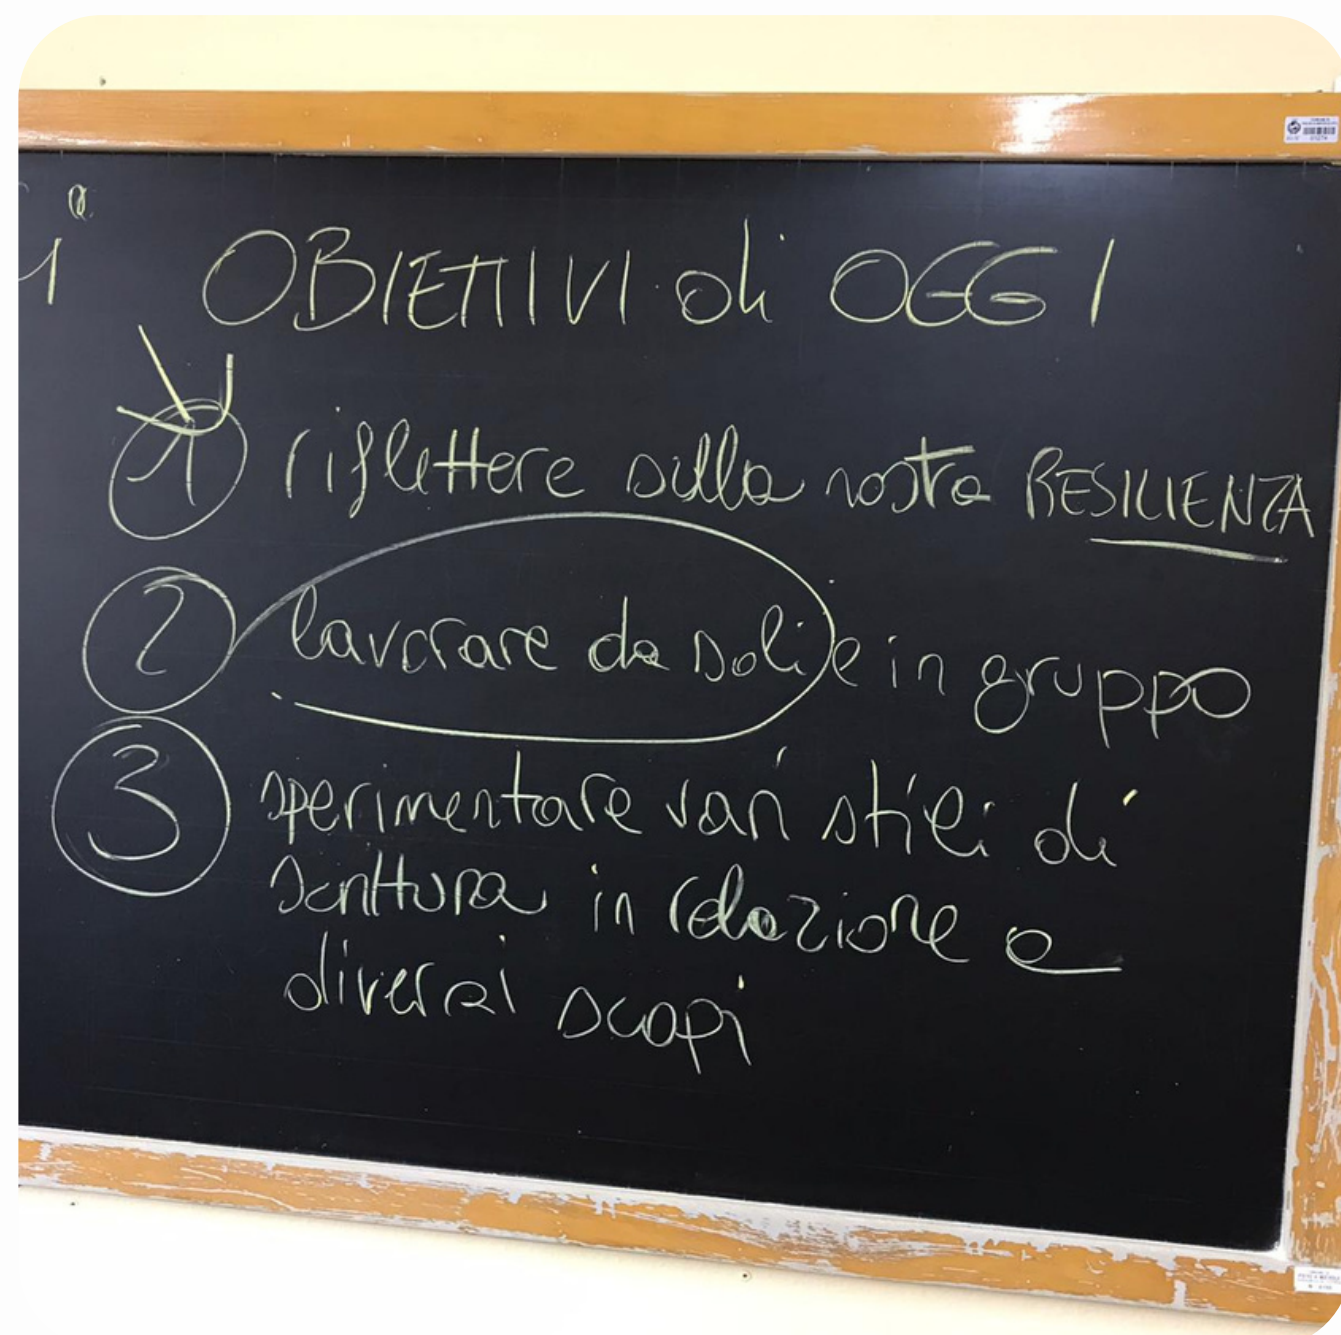 OBIETTIVI di OGGI
1 riflettere sulla nostra RESILIENZA
2 lavorare da soli e in gruppo
3 sperimentare vari stili di
scrittura in relazione a
diversi scopi